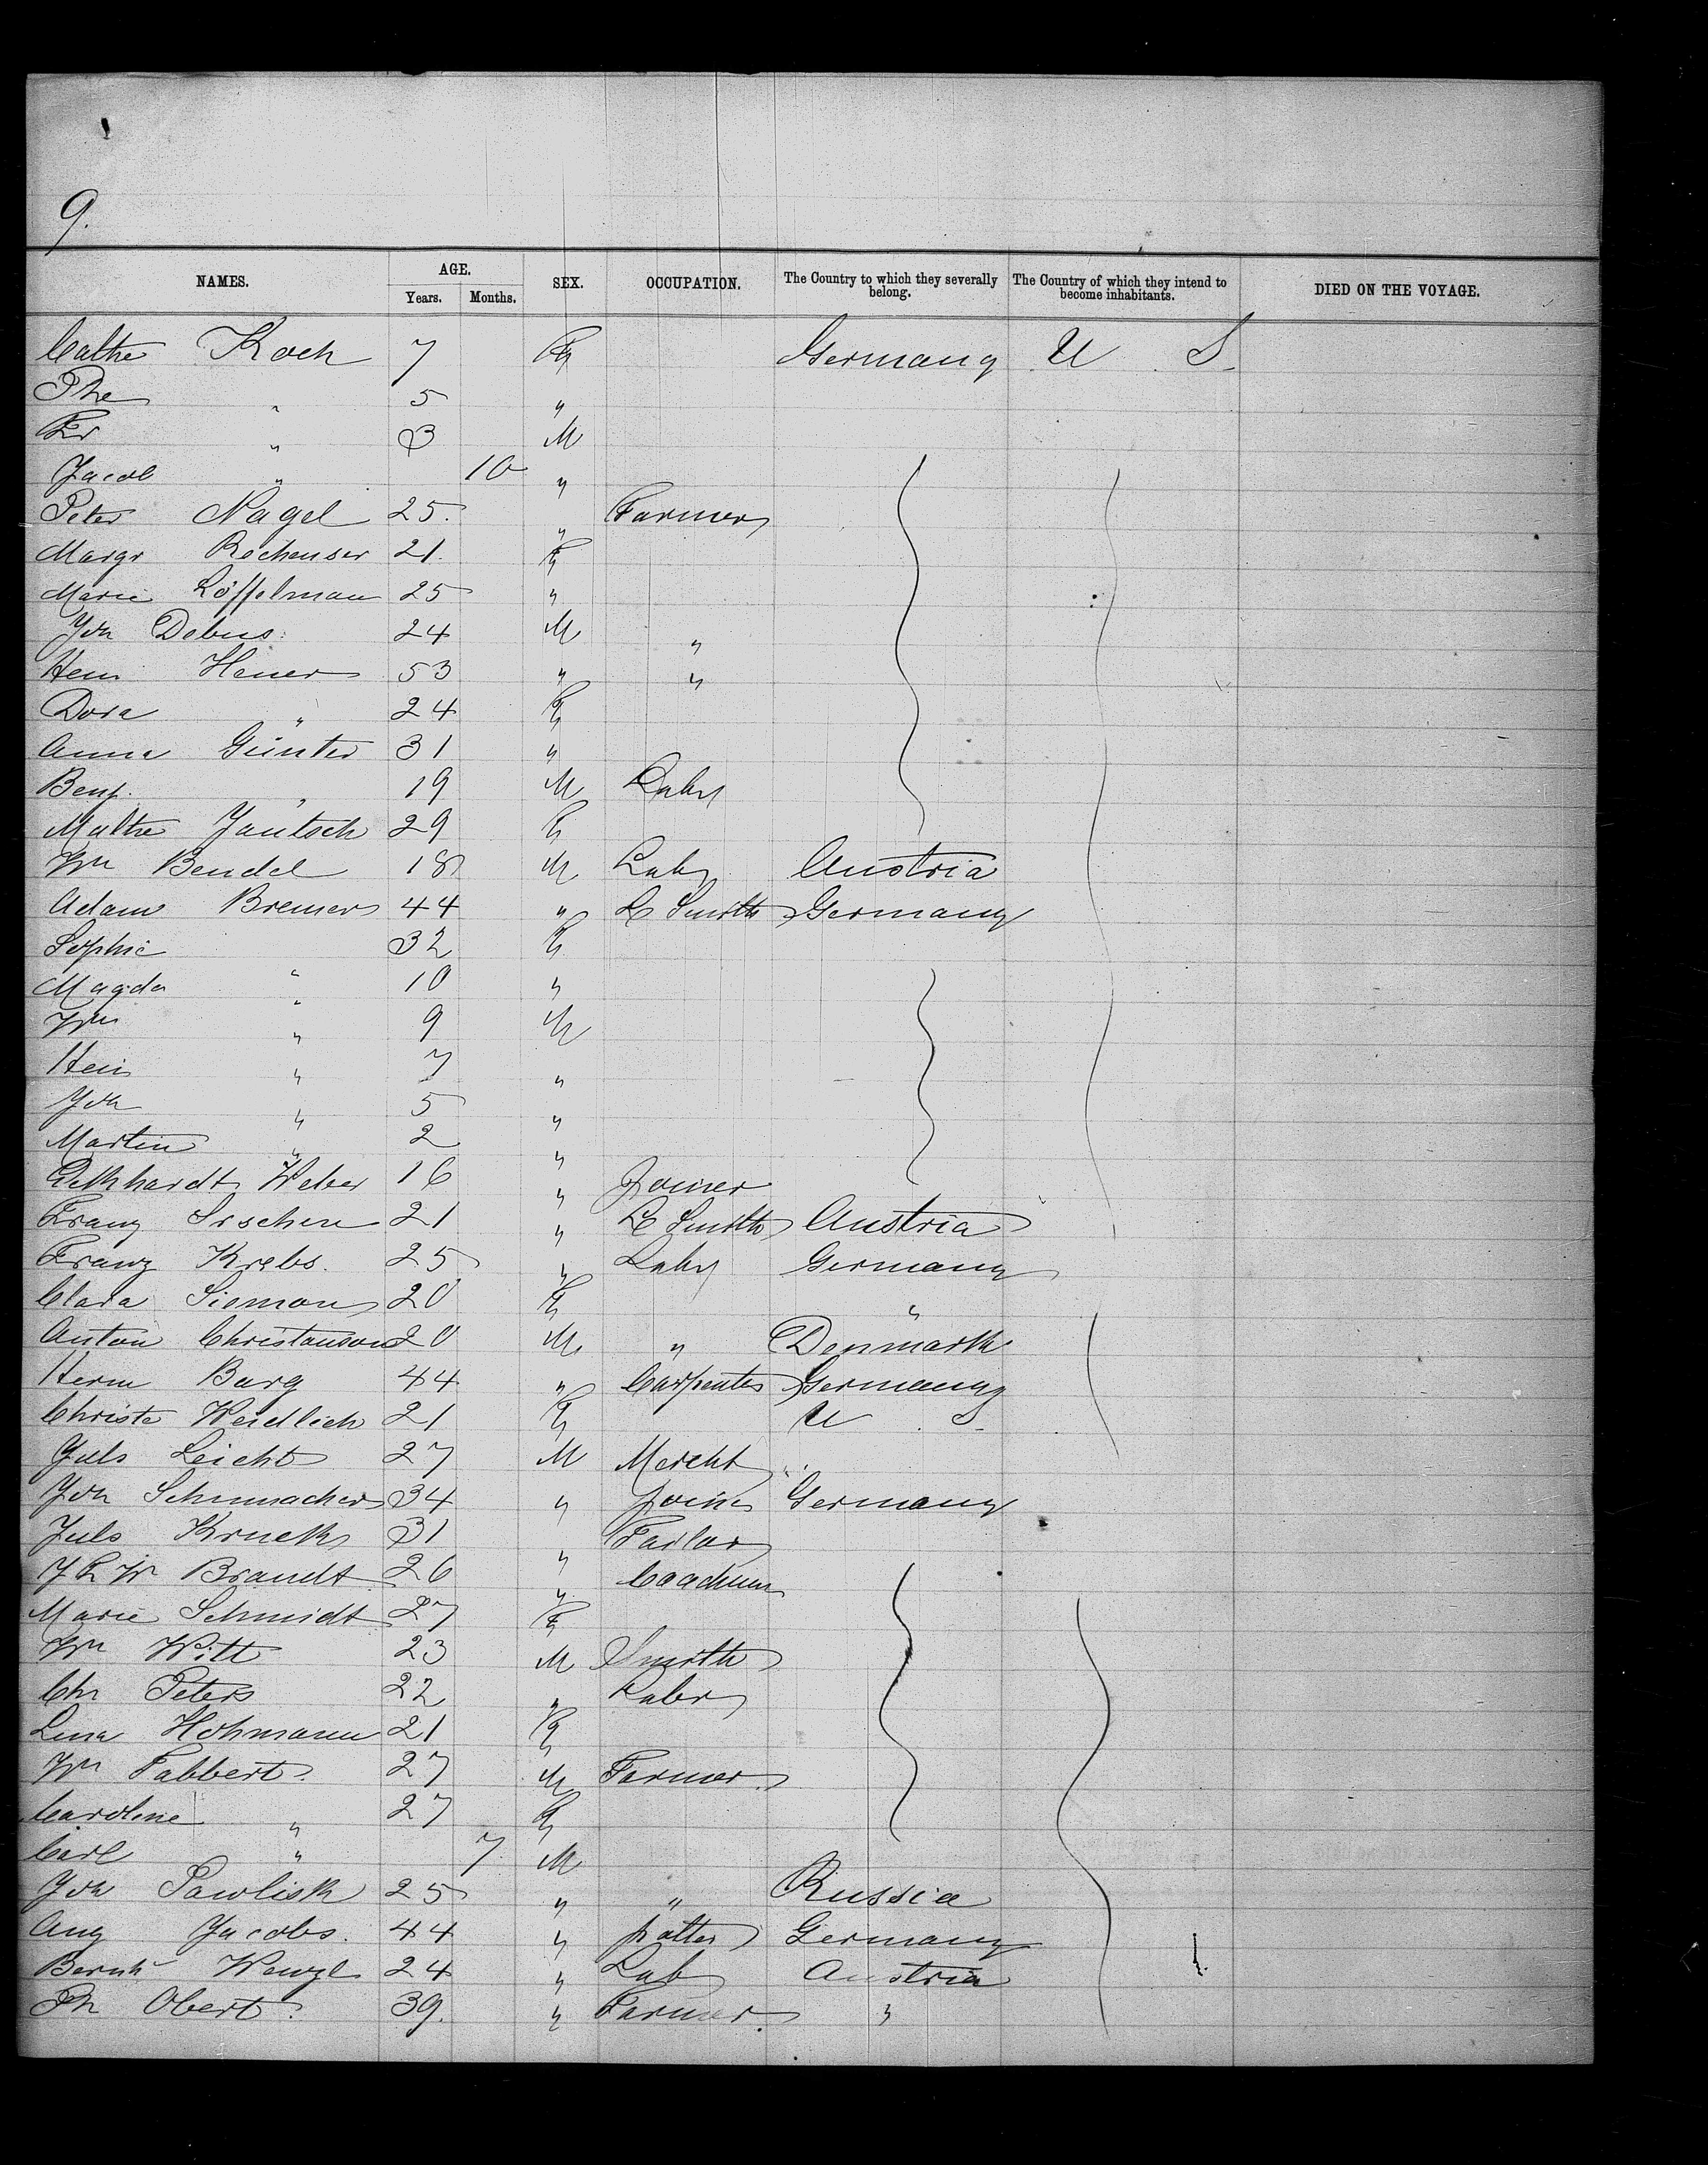 9.
NAMES. AGE. SEX. OCCUPATION. The Country to which they severally belong. The Country of which they intend to become inhabitants. DIED ON THE VOYAGE.
Years. Months.
Cathe Koch 7 F Germany U S.
Phe " 5 "
Fr " 3 M
Jacob " 10 "
Peter Nagel 25. " Farmer
Margr 21. F
Marie Löffelman 25 "
Joh Debus. 24 M "
Hein Hener 53 " "
Dora " 24 F
Anna Günter 31 "
Benj. " 19 M Labr
Mathe Jantsch 29 F
Wm Bendel 18 M Labr Austria
Adam Bremer 44 " L Smith Germany
Sophie " 32 F
Magda " 10 "
Wm " 9 M
Hein " 7 "
Joh " 5 "
Martin " 2 "
Weber 16 " Joiner
Franz 21 " L Smith Austria
Franz Krebs. 25 " Labr Germany
Clara Siemon 20 F "
Anton Christanson 20 M " Denmark
Herm Burg 44 " Carpenter Germany
Christe Weidlich 21 F U S.
Juls Leicht 27 M Mercht "
Joh Schumacher 34 " Joiner Germany
Juls Kruck 31 "
Brandt 26 " Coachmn
Marie Schmidt 27 F
Wm Witt 23 M Smith
Chr Peters 22 " Labr
Lina Hohmann 21 F
Wm Fabbert. 27 M Farmer.
Caroline " 27 F
Carl " 7 M
Joh Pawlisk 25 " " Russia
Aug Jacobs. 44 " potter Germany
Bernh Wenzl 24 " Lab Austria
Ph Obert. 39. " Farmer. "